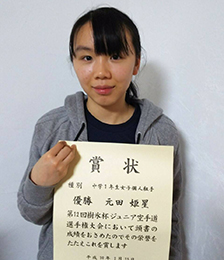 賞状
種別 中学1年生女子個人組手
優勝 元田 姫星
第12回樹水杯ジュニア空手道
選手権大会において頭書の
成績をおさめたのでその栄誉を
たたえこれを賞します
平成